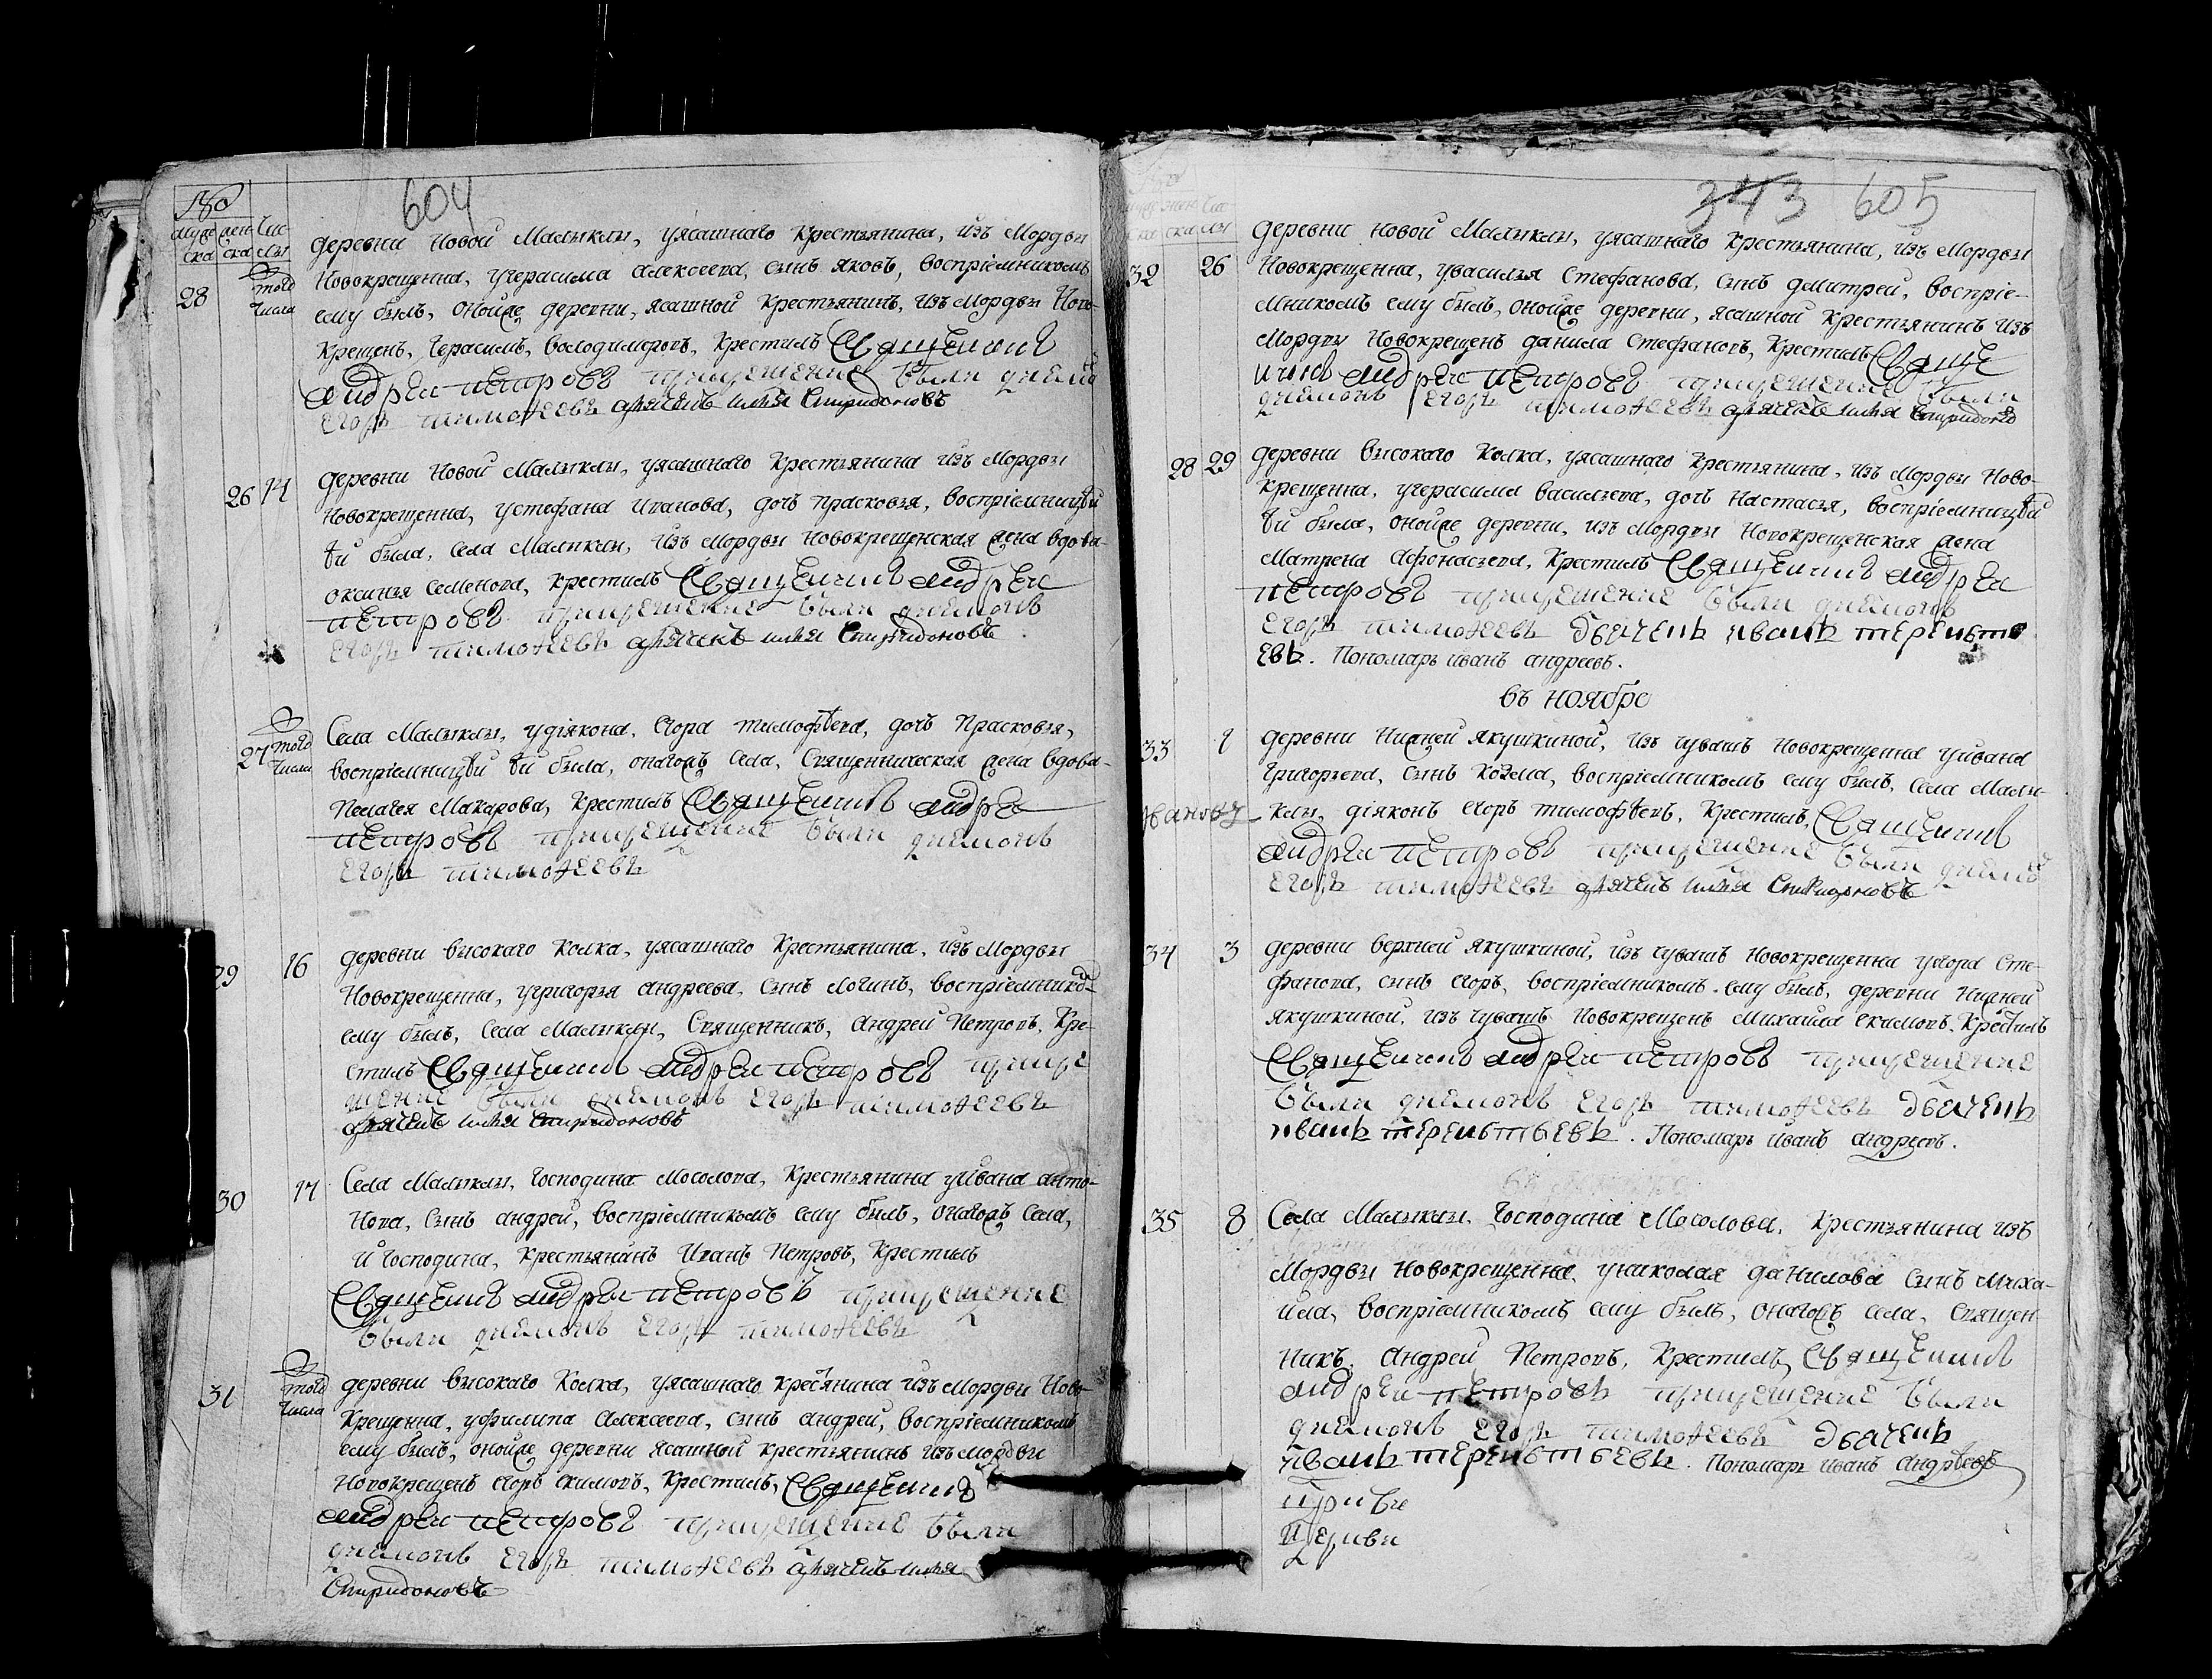 180
604
муже
ска
жен
ска
чис
лы
28
того
числа
деревни Новой Малыклы, уясашнаго крестьянина, изъ Мордвы
Новокрещенна, угерасима Алексеева, сынъ Яковъ, восприемникомъ
ему былъ, онойже деревни, ясашной крестьянинъ, изъ Мордвы Ново-
крещенъ, Герасимъ, Володимеровъ, крестилъ Священникъ
андреи петровъ прикрещение были диаконъ
егоръ тимофеевъ дьячекъ илья Спиридоновъ
26 14
деревни Новой Малыклы, уясашнаго крестьянина изъ Мордвы
Новокрещенна, устефана Иванова, дочь Прасковья, восприемницѣй
ѣй была, села Малыклы, изъ Мордвы новокрещенская жена вдова
оксинья Семенова, крестилъ Священникъ андреи
петровъ прикрещение были диаконъ
егоръ тимофеевъ дьячекъ илья Спиридоновъ
27
того
числа
Села Малыклы, удіякона, Егора тимофѣева, дочь Прасковья,
восприемницѣй ѣй была, онагожъ села, Священническая жена вдова-
Пелагея Макарова, крестилъ Священникъ андреи
петровъ прикрещение были диаконъ
егоръ тимофеевъ
29 16
деревни высокаго Колка, уясашнаго крестьянина, изъ Мордвы
Новокрещенна, угригорья андреева, сынъ Логинъ, восприемнико-
ему былъ, села Малыклы, Священникъ, Андрей Петровъ, Кре-
стилъ Священникъ андреи петровъ прикре
щение были диаконъ егоръ тимофеевъ
дьячекъ илья Спиридоновъ
30 17
Села Малыклы, Господина Мосолова, крестьянина уйвана анто-
нова, сынъ андрей, восприемникомъ ему былъ, онагожъ села,
и Господина, крестьянинъ Иванъ Петровъ, крестилъ
Священникъ андреи петровъ прикрещение
были диаконъ егоръ тимофеевъ
31
того
числа
деревни высокаго Колка, уясашнаго крестьянина изъ Мордвы Ново-
крещенна, уфилипа Алексеева, сынъ андрей, восприемникомъ
ему былъ, онойже деревни ясашной крестьянинъ изъ мордвы
новокрещенъ егоръ екимовъ, крестилъ, Священникъ
андреи петровъ прикрещение были
диаконъ егоръ тимофеевъ дьячекъ илья
Спиридоновъ
343 605
32 26
деревни новой Малыклы, уясашнаго крестьянина, изъ Мордвы
Новокрещенна, увасилья Стефанова, сынъ дмитрей, восприе-
мникомъ ему былъ, онойже деревни, ясашной крестьянинъ изъ
Мордвы Новокрещенъ данила Стефановъ, крестилъ Свяще
нникъ андреи петровъ прикрещение были
диаконъ егоръ тимофеевъ дьячекъ илья Спиридоновъ
28 29
деревни высокаго Колка, уясашнаго крестьянина, изъ Мордвы Ново-
крещенна, угерасима васильева, дочь Настасья, восприемницѣй
ѣй была, онойже деревни, изъ Мордвы Новокрещенская жена
Матрена Афонасьева, крестилъ Священникъ андреи
петровъ прикрещение были диаконъ
егоръ тимофеевъ дьячекъ иванъ терентьт
евъ. Пономарь иванъ андреевъ.
въ ноябре
33 1
деревни Нижней якушкиной, изъ чувашъ новокрещенна уйвана
Григорьева, сынъ Козма, восприемникомъ ему былъ, села Малы-
клы, діяконъ егоръ тимофѣевъ, крестилъ, Священникъ
андреи петровъ прикрещение были диаконъ
егоръ тимофеевъ дьячекъ илья Спиридоновъ
34 3
деревни верхней якушкиной, изъ чувашъ новокрещенна уегора Сте-
фанова, сынъ егоръ, восприемникомъ ему былъ, деревни Нижней
якушкиной, изъ чувашъ Новокрещенъ Михайла екимовъ. крестилъ
Священникъ андреи петровъ прикрещение
были диаконъ егоръ тимофеевъ дьячекъ
иванъ терентьтевъ. Пономарь иванъ андреевъ.
35 8
Села Малыклы. Господина Мосолова, крестьянина изъ
Мордвы новокрещенна, униколая данилова сынъ Миха-
йла, восприемникомъ ему былъ, онагожъ села, Священ-
никъ, Андрей Петровъ, крестилъ, Священникъ
андреи петровъ прикрещение были
диаконъ егоръ тимофеевъ дьячекъ
иванъ терентьтевъ. Пономарь иванъ андрѣевъ